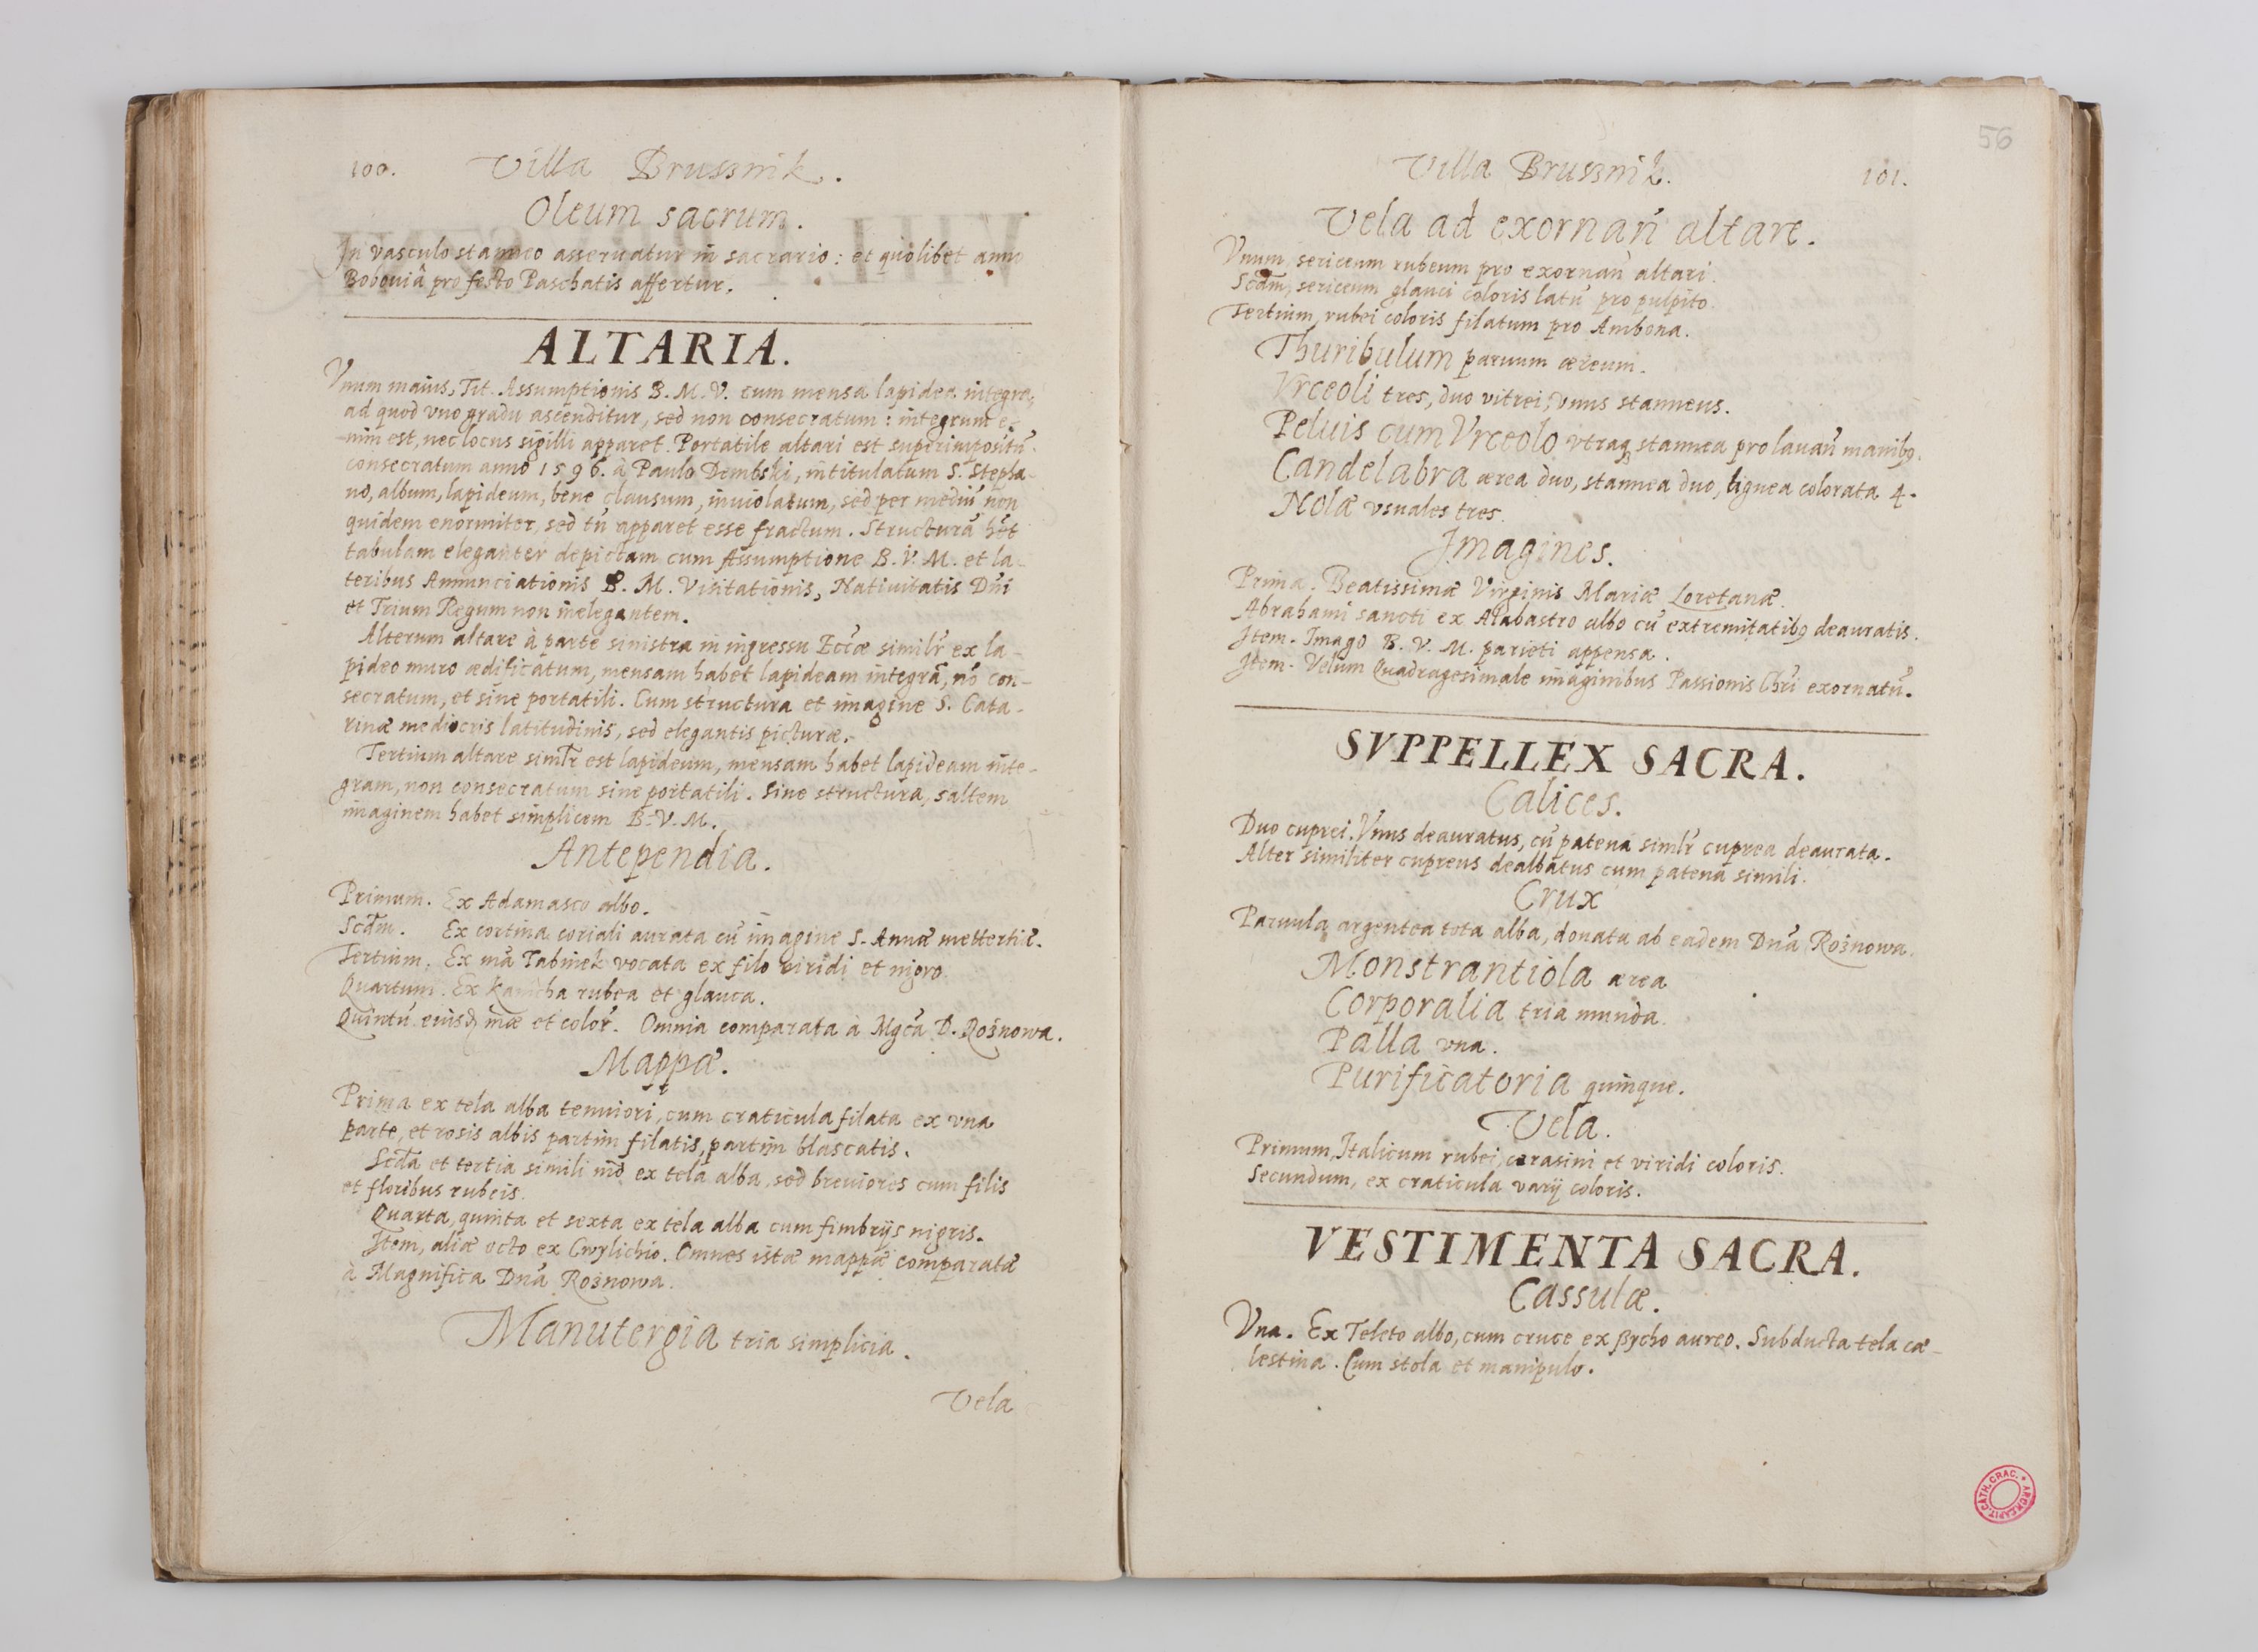 100. Villa Brussnik.
Oleum sacrum.
In vasculo stanneo asseruatur in sacrario: et quolibet anno
Bobouiâ pro festo Paschatis affertur.
ALTARIA.
Vnum maius, Tit. Assumptionis B. M. V. cum mensa lapidea integra,
ad quod vno gradu ascenditur, sed non consecratum: integrum e-
nim est, nec locus sigilli apparet. Portatile altari est superimpositũ
consecratum anno 1596. à Paulo Dembski, intitulatum S. Stepha-
no, album, lapideum, bene clausum, inuiolatum, sed per mediũ non
quidem enormiter, sed tñ apparet esse fractum. Structurã hẽt
tabulam eleganter depictam cum Assumptione B. V. M. et la-
teribus Annunciationis B. M. Visitationis, Natiuitatis Dñi
et Trium Regum non inelegantem.
Alterum altare à parte sinistra in ingressu Eccæ similr ex la-
pideo muro ædificatum, mensam habet lapideam integrã, nõ con-
secratum, et sine portatili. Cum structura et imagine S. Cata-
rinæ mediocris latitudinis, sed elegantis picturæ.
Tertium altare simlr est lapideum, mensam habet lapideam inte-
gram, non consecratum sine portatili. Sine structura, saltem
imaginem habet simplicem B. V. M.
Antependia.
Primum. Ex Adamasco albo.
Scdm. Ex cortina coriali aurata cũ imagine S. Annæ mettertiæ.
Tertium. Ex mã Tabinek vocata ex filo viridi et nigro.
Quartum. Ex Kamcha rubea et glauca.
Quintũ eiusd mæ et color. Omnia comparata à Mgca D. Rożnowa.
Mappæ.
Prima ex tela alba tenuiori, cum craticula filata ex vna
parte, et rosis albis partim filatis, partim blascatis.
Scda et tertia simili mõ ex tela alba, sed breuiores cum filis
et floribus rubeis.
Quarta, quinta et sexta ex tela alba cum fimbrijs nigris.
Item, aliæ octo ex Cwylichio. Omnes istæ mappæ comparatæ
à Magnifica Dnã Rożnowa.
Manutergia tria simplicia.
Vela
56
Villa Brussnik. 101.
Vela ad exornañ altare.
Vnum, sericeum rubeum pro exornañ altari.
Scdm, sericeum glauci coloris latũ pro pulpito.
Tertium, rubei coloris filatum pro Ambona.
Thuribulum paruum æreum.
Vrceoli tres, duo vitrei, vnus stanneus.
Peluis cum Vrceolo vtraq; stannea pro lauañ manib9.
Candelabra ærea duo, stannea duo, lignea colorata 4.
Nolæ vsuales tres.
Imagines.
Prima. Beatissimæ Virginis Mariæ Loretanæ.
Abrahami sancti ex Alabastro albo cũ extremitatib9 deauratis.
Item. Imago B. V. M. parieti appensa.
Item. Velum Quadragesimale imaginibus Passionis Chri exornatũ.
SVPPELLEX SACRA.
Calices.
Duo cuprei. Vnus deauratus, cũ patena simlr cuprea deaurata.
Alter similiter cupreus dealbatus cum patena simili.
Crux
Paruula argentea tota alba, donata ab eadem Dnã Rożnowa.
Monstrantiola ærea
Corporalia tria munda.
Palla vna.
Purificatoria quinque.
Vela.
Primum, Italicum rubei, cerasini et viridi coloris.
Secundum, ex craticula varij coloris.
VESTIMENTA SACRA.
Cassulæ.
Vna. Ex Teleto albo, cum cruce ex ßycho aureo. Subducta tela cæ-
lestina. Cum stola et manipulo.
ARCH. CAPIT. CATH. CRAC.